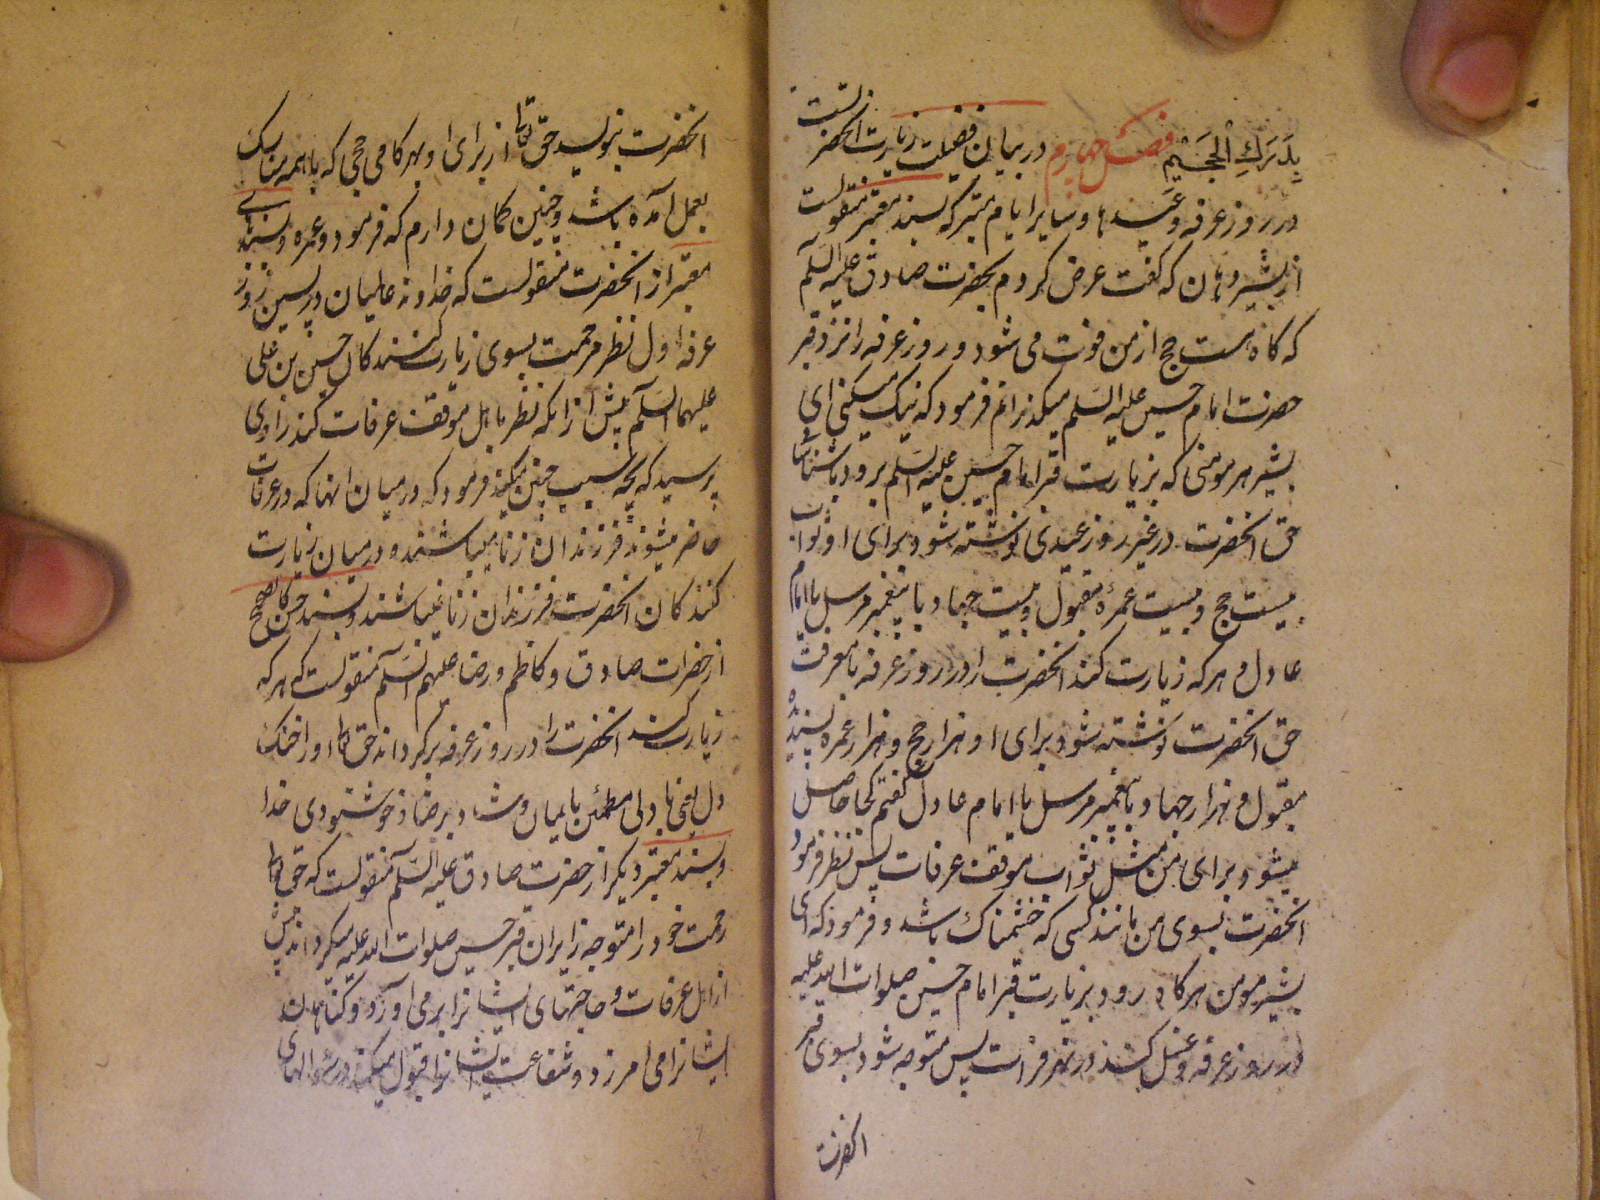 بِدَرَكِ الْجَحِيْمِ فصل چهارم در بیان فضیلت زیارت انحضرتست
در روز عرفه و عیدها و سایر ایام متبرکه بسند معتبر منقولست
از بشیر دهان که گفت عرض کردم بحضرت صادق علیه السلم
که گاه هست حج از من فوت می شود و روز عرفه را نزد قبر
حضرت امام حسین علیه السلم میگذرانم فرمود که نیک میکنی ای
بشیر هر مومنی که بزیارت قبر امام حسین علیه السلم برود باشناسا
حق انحضرت در غیر روز عیدی نوشته شود برای او ثواب
بیست حج و بیست عمرهٔ مقبول و بیست جهاد با پیغمبر مرسل یا امام
عادل و هر که زیارت کند انحضرت را در روز عرفه با معرفت
حق انحضرت نوشته شود برای او هزار حج و هزار عمره پسندیدهٔ
مقبول و هزار جهاد با پیغمبر مرسل یا امام عادل گفتم کجا حاصل
میشود برای من مثل ثواب موقف عرفات پس نظر فرمود
انحضرت بسوی من مانند کسی که خشمناک باشد و فرمود که ای
بشیر مومن هرگاه برود بزیارت قبر امام حسین صلوات الله علیه
در روز عرفه و غسل کند در نهر فرات پس متوجه شود بسوی قبر
انحضرت
انحضرت بنویسد حق تعا از برای او بهر کامی حجی که باهمه مناسک
بعمل امده باشد و چنین کمان دارم که فرمود و عمره و بسندهای
معتبر از انحضرت منقولست که خداوند عالمیان در پسین روز
عرفه اول نظر مرحمت بسوی زیارت کنندکان حسین بن علی
علیهما السلم پیش از انکه نظر باهل موقف عرفات کند راوی
پرسید که بچه سبب چنین میکند فرمود که در میان انها که در عرفات
حاضر میشوند فرزندان زنا میباشند و در میان زیارت
کنندکان انحضرت فرزندان زنا نمیباشند و بسند حسن کالصحیح
از حضرات صادق و کاظم و رضا علیهم السلم منقولست که هر که
زیارت کند انحضرت را در روز عرفه برگرداند حق تعا او را خنک
دل یعنی با دلی مطمئن بایمان و شاد برضا و خوشنودی خدا
و بسند معتبر دیکر از حضرت صادق علیه السلم منقولست که حق تعا
رحمت خود را متوجه زایران قبر حسین صلوات الله علیه میکرداند پیش
از اهل عرفات و حاجتهای ایشانرا برمی اورد و کناهان
ایشانرا می امرزد و شفاعت ایشانرا قبول میکند در سؤالهای